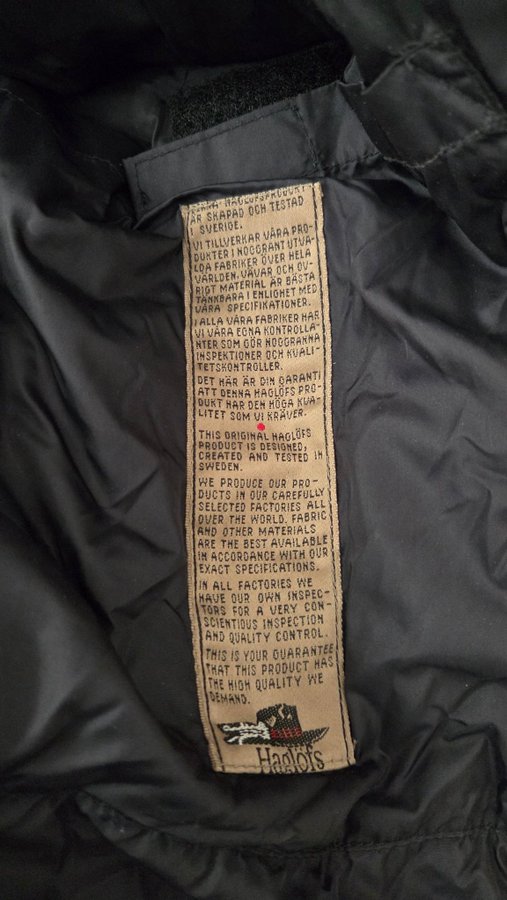 HAGLÖFSPRODUKT
ÄR SKAPAD OCH TESTAD
I SVERIGE.
VI TILLVERKAR VÅRA PRO-
DUKTER I NOGGRANT UTVA-
LDA FABRIKER ÖVER HELA
VÄRLDEN. VÄVAR OCH ÖV-
RIGT MATERIAL ÄR BÄSTA
TÄNKBARA I ENLIGHET MED
VÅRA SPECIFIKATIONER.
I ALLA VÅRA FABRIKER HAR
VI VÅRA EGNA KONTROLLA-
NTER SOM GÖR NOGGRANNA
INSPEKTIONER OCH KVALI-
TETSKONTROLLER.
DET HÄR ÄR DIN GARANTI
ATT DENNA HAGLÖFS PRO-
DUKT HAR DEN HÖGA KVA-
LITET SOM VI KRÄVER.
THIS ORIGINAL HAGLÖFS
PRODUCT IS DESIGNED,
CREATED AND TESTED IN
SWEDEN.
WE PRODUCE OUR PRO-
DUCTS IN OUR CAREFULLY
SELECTED FACTORIES ALL
OVER THE WORLD. FABRIC
AND OTHER MATERIALS
ARE THE BEST AVAILABLE
IN ACCORDANCE WITH OUR
EXACT SPECIFICATIONS.
IN ALL FACTORIES WE
HAVE OUR OWN INSPEC-
TORS FOR A VERY CON-
SCIENTIOUS INSPECTION
AND QUALITY CONTROL.
THIS IS YOUR GUARANTEE
THAT THIS PRODUCT HAS
THE HIGH QUALITY WE
DEMAND.
Haglöfs